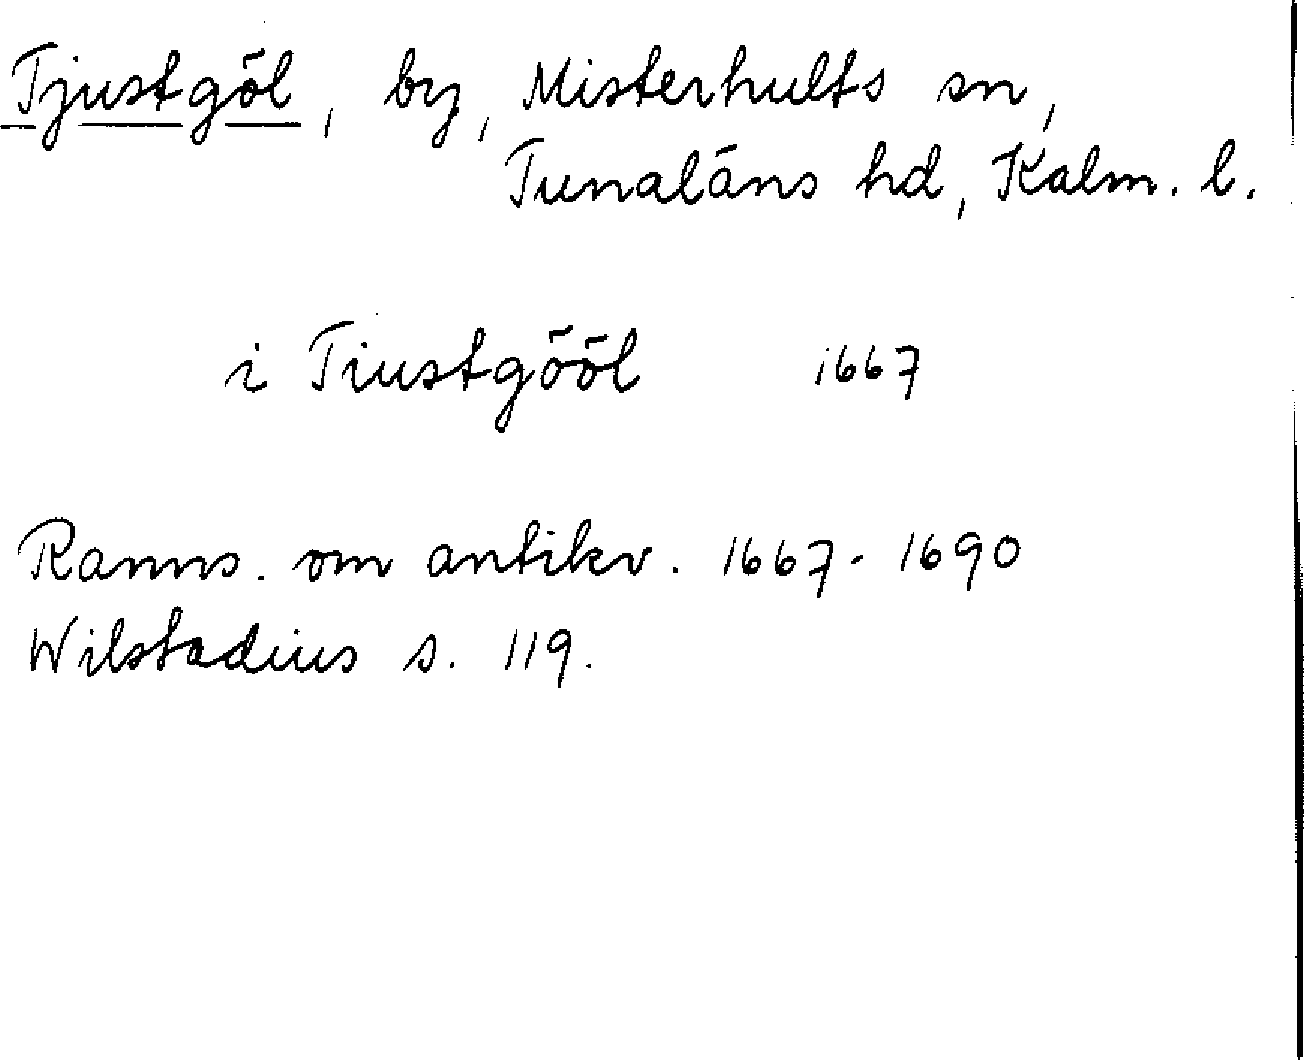 Tjustgöl, by, Misterhults sn,
Tunaläns hd, Kalm. l.
i Tiustgööl 1667
Ranns. om antikv. 1667-1690
Wilstadius s. 119.